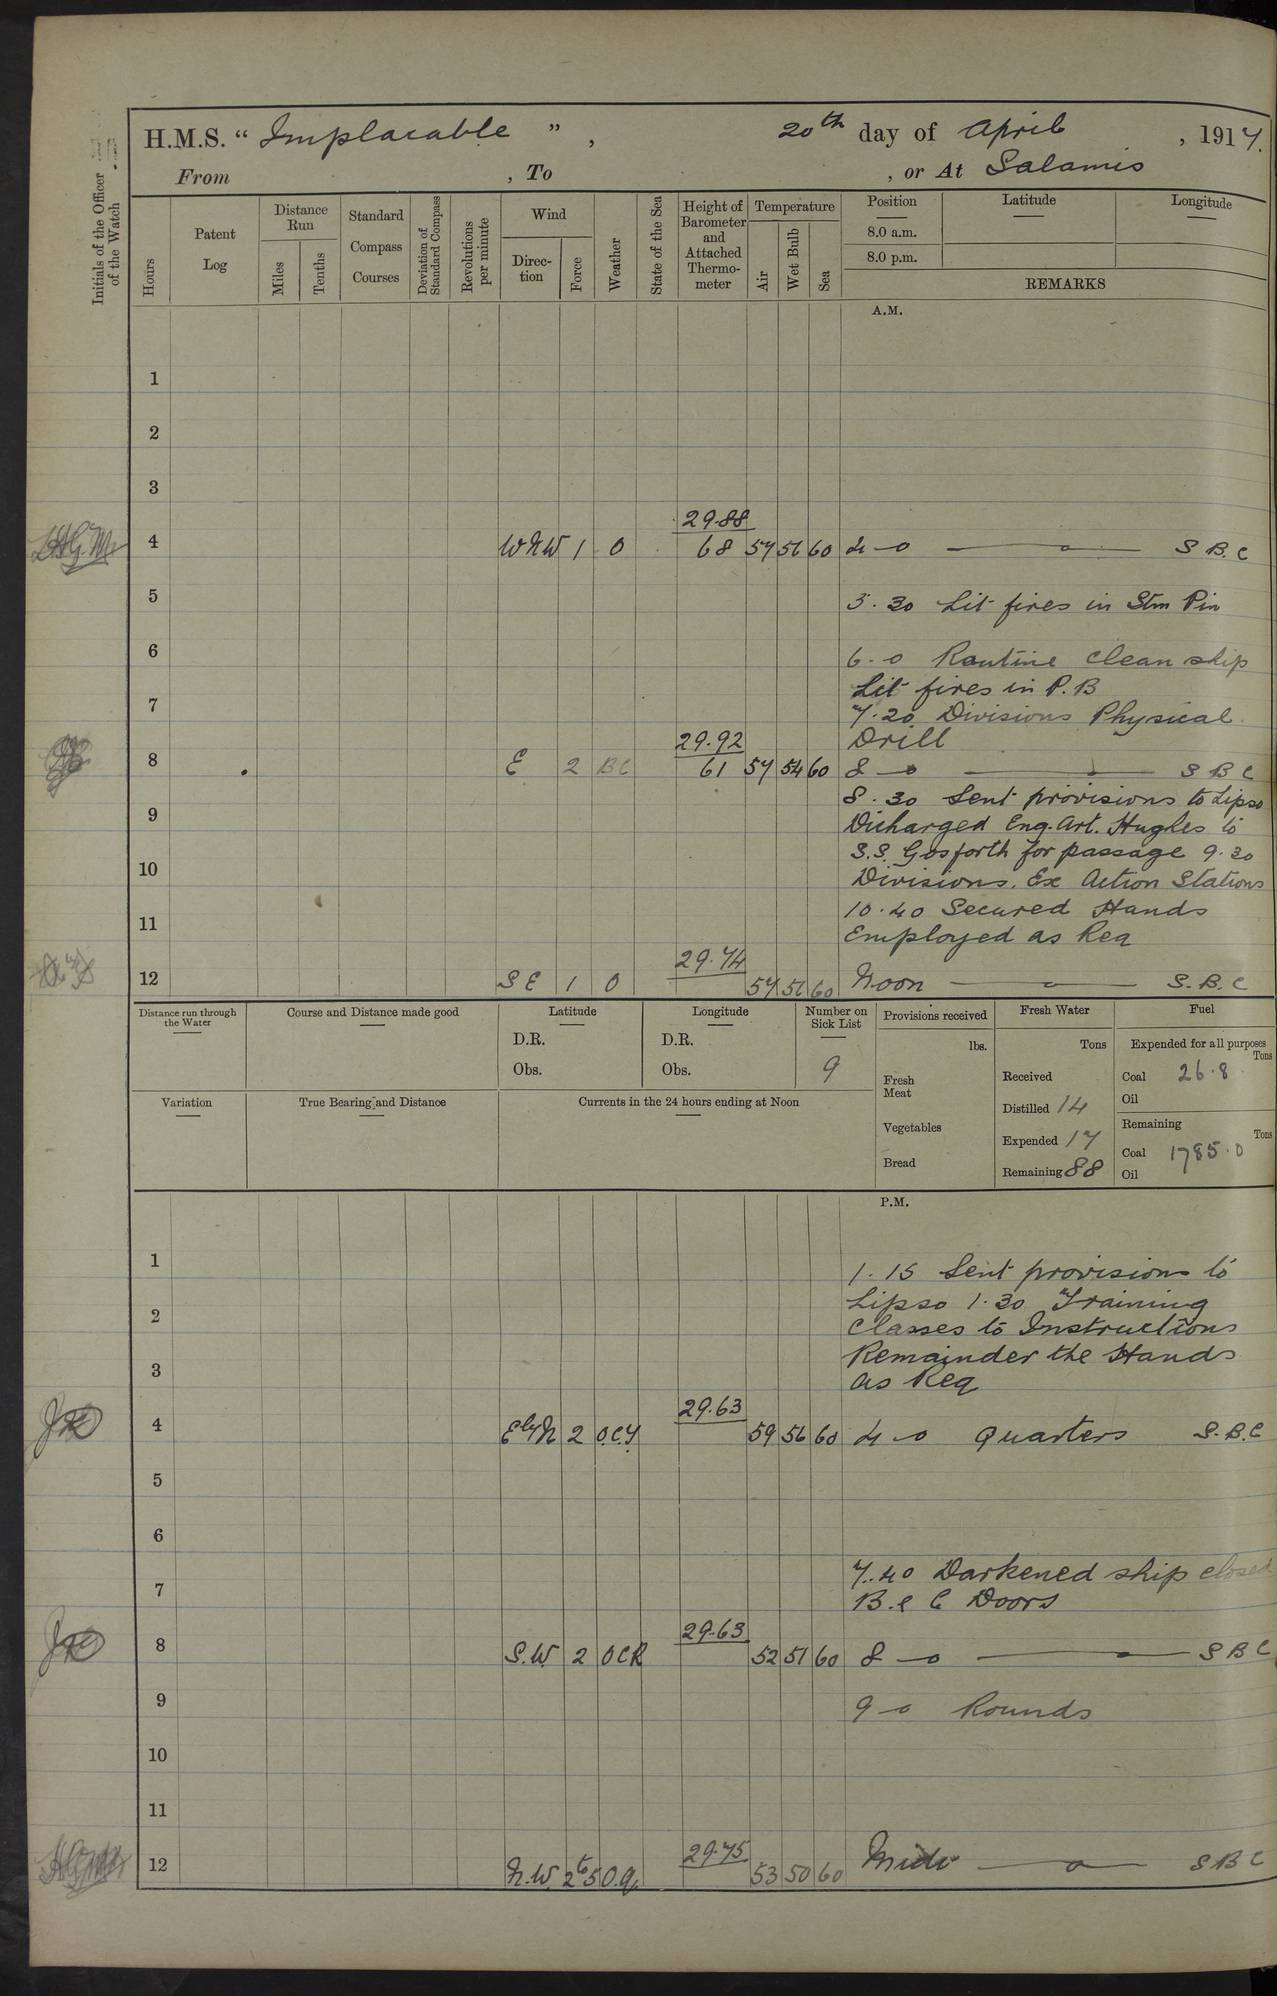 H.M.S. “ Implacable ” , 20th day of April , 1917.
From , To , or At Salamis
Initials of the Officer of the Watch
Hours
Patent Log
Distance Run
Miles
Tenths
Standard Compass Courses
Deviation of Standard Compass
Revolutions per minute
Wind
Direction
Force
Weather
State of the Sea
Height of Barometer and Attached Thermometer
Temperature
Air
Wet Bulb
Sea
Position
8.0 a.m.
8.0 p.m.
Latitude
Longitude
REMARKS
A.M.
1
2
3
29.88
4 WNW 1 O 68 57 56 60 4-0 S B. C
5 5.30 Lit fires in Stm Pin
6 6.0 Routine Clean ship
Lit fires in P.B
7 7.20 Divisions Physical
29.92 Drill
8 E 2 BC 61 57 54 60 8-0 S B C
8.30 Sent provisions to Lipso
9 Dicharged Eng. Art. Hughes to
S.S. Gosforth for passage 9.30
10 Divisions. Ex Action Stations
10.40 Secured Hands
11 Employed as Req
29.74
12 SE 1 O 57 56 60 Noon S. B. C
Distance run through the Water
Course and Distance made good
Latitude
D.R.
Obs.
Longitude
D.R.
Obs.
Number on Sick List
9
Provisions received
lbs.
Fresh Meat
Vegetables
Bread
Fresh Water
Tons
Received
Distilled 14
Expended 17
Remaining 88
Fuel
Expended for all purposes
Tons
Coal 26.8
Oil
Remaining
Tons
Coal 1785.0
Oil
Variation
True Bearing and Distance
Currents in the 24 hours ending at Noon
P.M.
1 1.15 Sent provisions to
2 Lipso 1.30 Training
Classes to Instructions
3 Remainder the Hands
as Req
29.63
4 E by N 2 O.C.Y 59 56 60 4-0 Quarters S. B. C
5
6
7.40 Darkened ship closed
7 B. & C Doors
29.63
8 S.W. 2 OCR 52 51 60 8-0 S B C
9 9-0 Rounds
10
11
29.75
12 N.W. 2 to 5 O.q. 53 50 60 Midt S B C